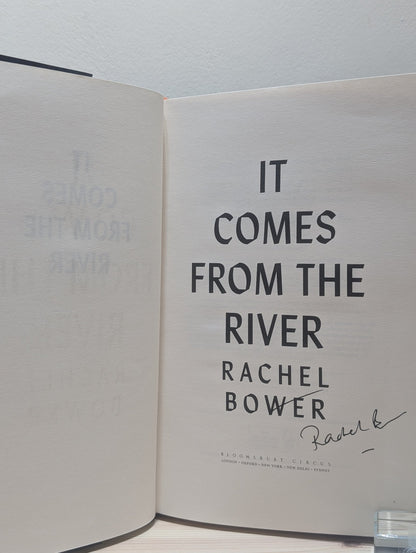 IT
COMES
FROM THE
RIVER
RACHEL
BOWER
Rachel B
BLOOMSBURY CIRCUS
LONDON • OXFORD • NEW YORK • NEW DELHI • SYDNEY